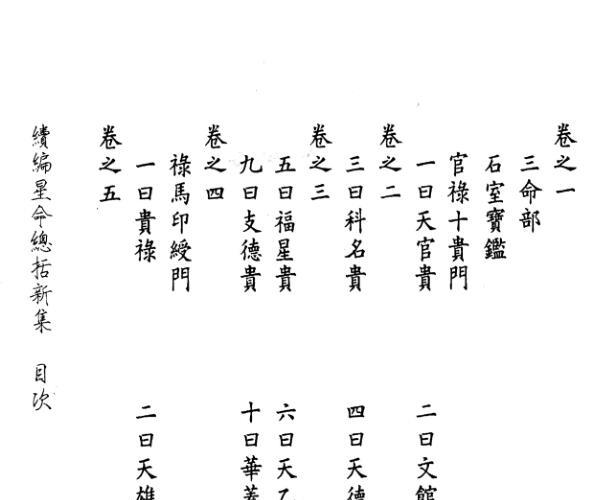 卷之一
三命部
石室寶鑑
官祿十貴門
一曰天官貴 二曰文館
卷之二
三曰科名貴 四曰天德
卷之三
五曰福星貴 六曰天乙
九曰支德貴 十曰華蓋
卷之四
祿馬印綬門
一曰貴祿 二曰天雄
卷之五
續編星命總括新集 目次